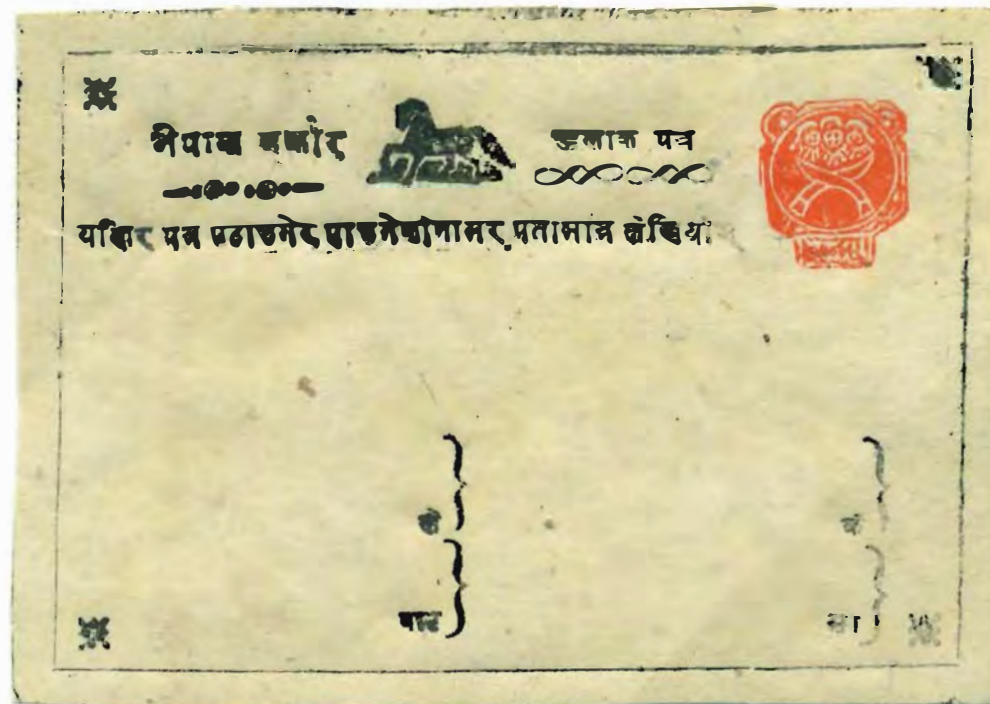 नेपाल सर्कार
हुलाक पत्र
यसतिर पत्र पठाउनेर पाउनेको नामर पतामात्र लेखियोस्
को
बाट
को
मा